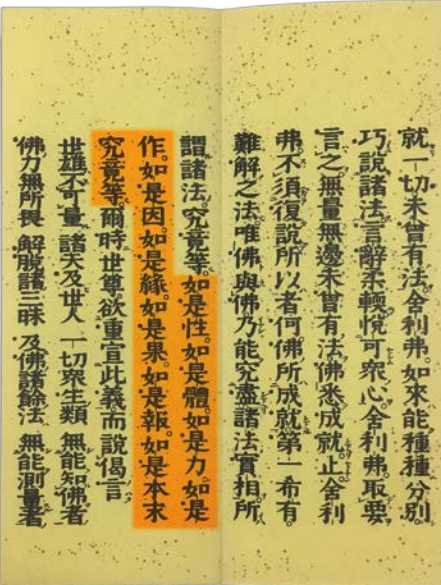 就一切未曾有法舍利弗。如來能種種分別。
巧說諸法。言辭柔輭。悅可衆心。舍利弗。取要
言之。無量無邊未曾有法。佛悉成就。止舍利
弗。不須復說。所以者何。佛所成就第一希有。
難解之法。唯佛與佛乃能究盡諸法實相。所
謂諸法。究竟等。如是性。如是體。如是力。如是
作。如是因。如是緣。如是果。如是報。如是本末
究竟等。爾時世尊。欲重宣此義。而說偈言
世雄不可量 諸天及世人 一切衆生類 無能知佛者
佛力無所畏 解脫諸三昧 及佛諸餘法 無能測量者